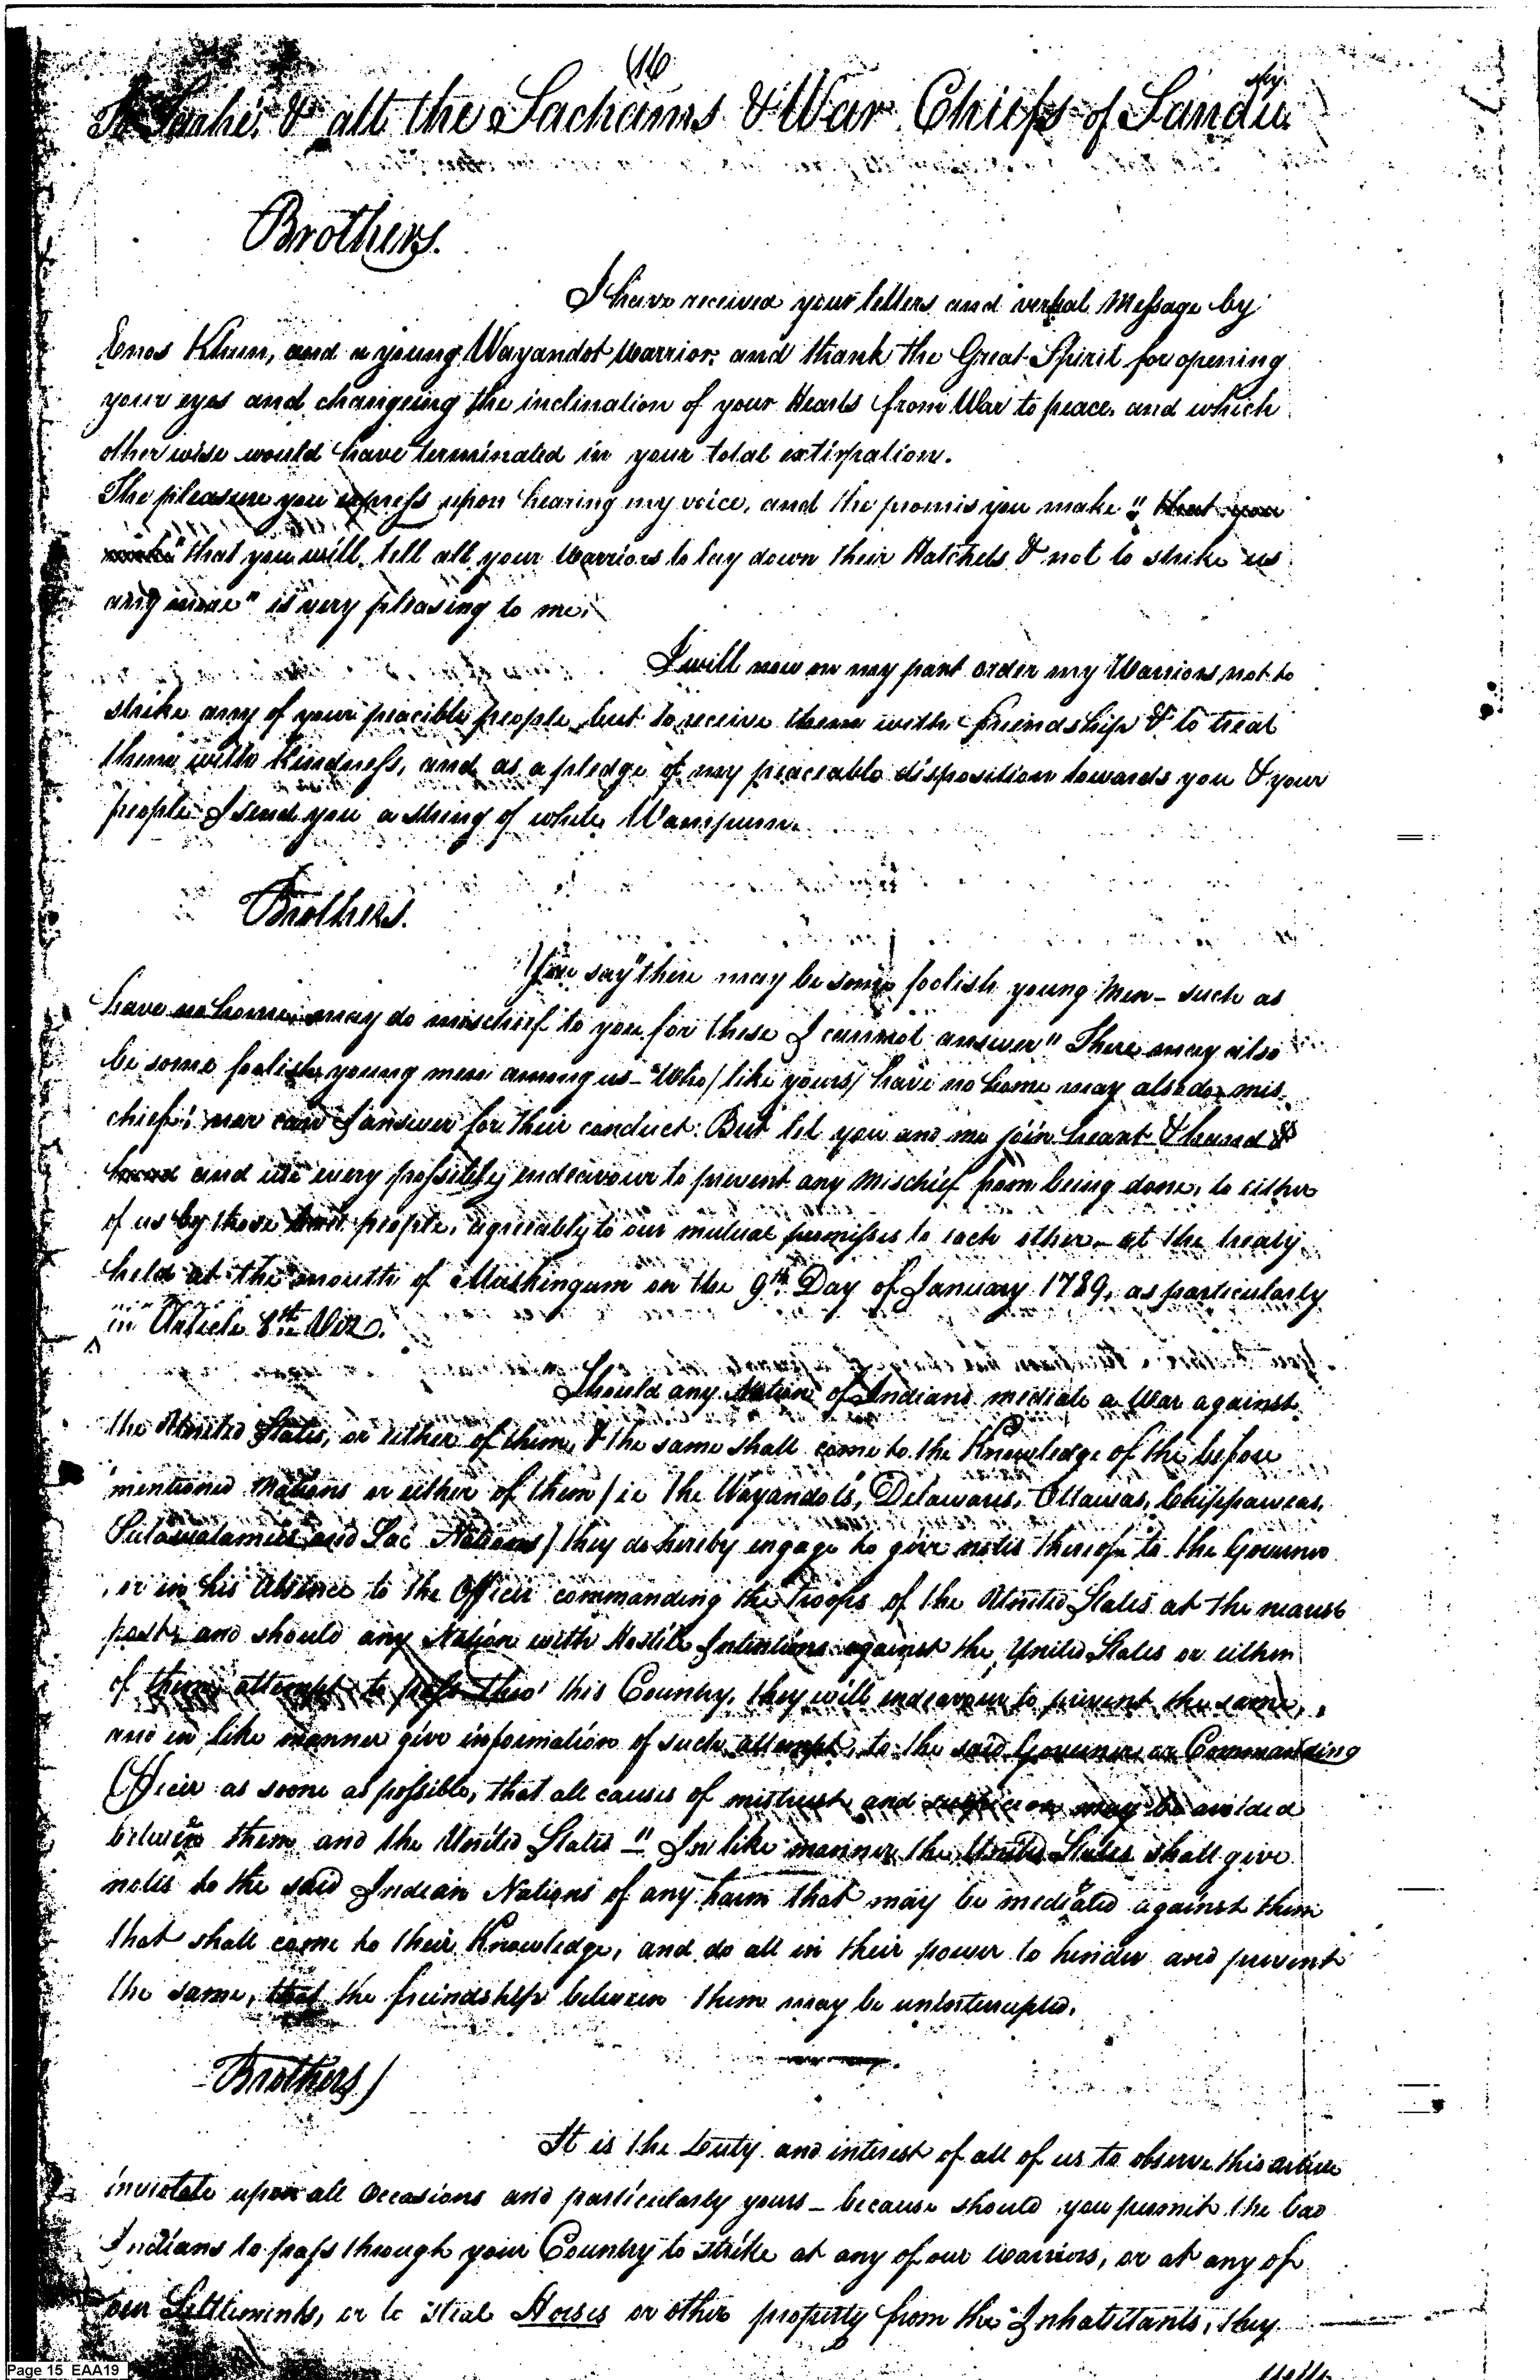 (16
To Tarhé, & all the Sachems & War Chiefs of Sandusky
Brothers.
I have received your letters and verbal Message by
Enos Khun, and a young Wayandot Warrior, and thank the Great Spirit for opening
your eyes and changeing the inclination of your Hearts from War to peace, and which
otherwise would have terminated in your total extirpation.
The pleasure you express upon hearing my voice, and the promis you make " that you
make " that you will tell all your Warriors to lay down their Hatchets & not to strike us
any more" is very pleasing to me.
I will now on my part order my Warriors not to
strike any of your peacible people but to receive them with friendship & to treat
them with kindness, and as a pledge of my peaceable disposition towards you & your
people I send you a string of white Wampum.
Brothers.
You say "there may be some foolish young Men - such as
have no home may do mischief to you, for these I cannot answer" There may also
be some foolish young men among us - Who / like yours / have no home may also do mis
chief; nor can I answer for their conduct. But let you and me join heart & hand &
hand and use every possible endeavour to prevent any Mischief from being done, to either
of us by those people, agreeably to our mutual promisses to each other - at the treaty
held at the mouth of Muskingum on the 9th Day of January 1789, as particularly
in Article 8th Viz.
Should any Nation of Indians mediate a War against
the United States, or either of them, & the same shall come to the Knowledge of the before
mentioned Nations or either of them / ie the Wayandots, Delawares, Ottawas, Chippaweas,
Putawatamies and Sac Nations / they do hereby engage to give notis thereof to the Governor
or in his absence to the Officer commanding the troops of the United States at the nearest
post, and should any Nation with Hostile Intentions against the United States or either
of them attempt to pass thro' this Country, they will endeavour to prevent the same,
and in like manner give information of such attempt, to the said Governor or Commanding
Officer as soone as possible, that all causes of mistrust and suspicion may be avoided
between them and the United States " In like manner the United States shall give
notis to the said Indian Nations of any harm that may be mediated against them
that shall come to their Knowledge, and do all in their power to hinder and prevent
the same, that the friendship between them may be uninterupted.
Brothers /
It is the Duty and interest of all of us to observe this article
inviolate upon all Occasions and particularly yours - because should you permit the bad
Indians to pass through your Country to strike at any of our Warriors, or at any of
our Settlements, or to steal Horses or other property from the Inhabitants, they
Page 15 EAA19